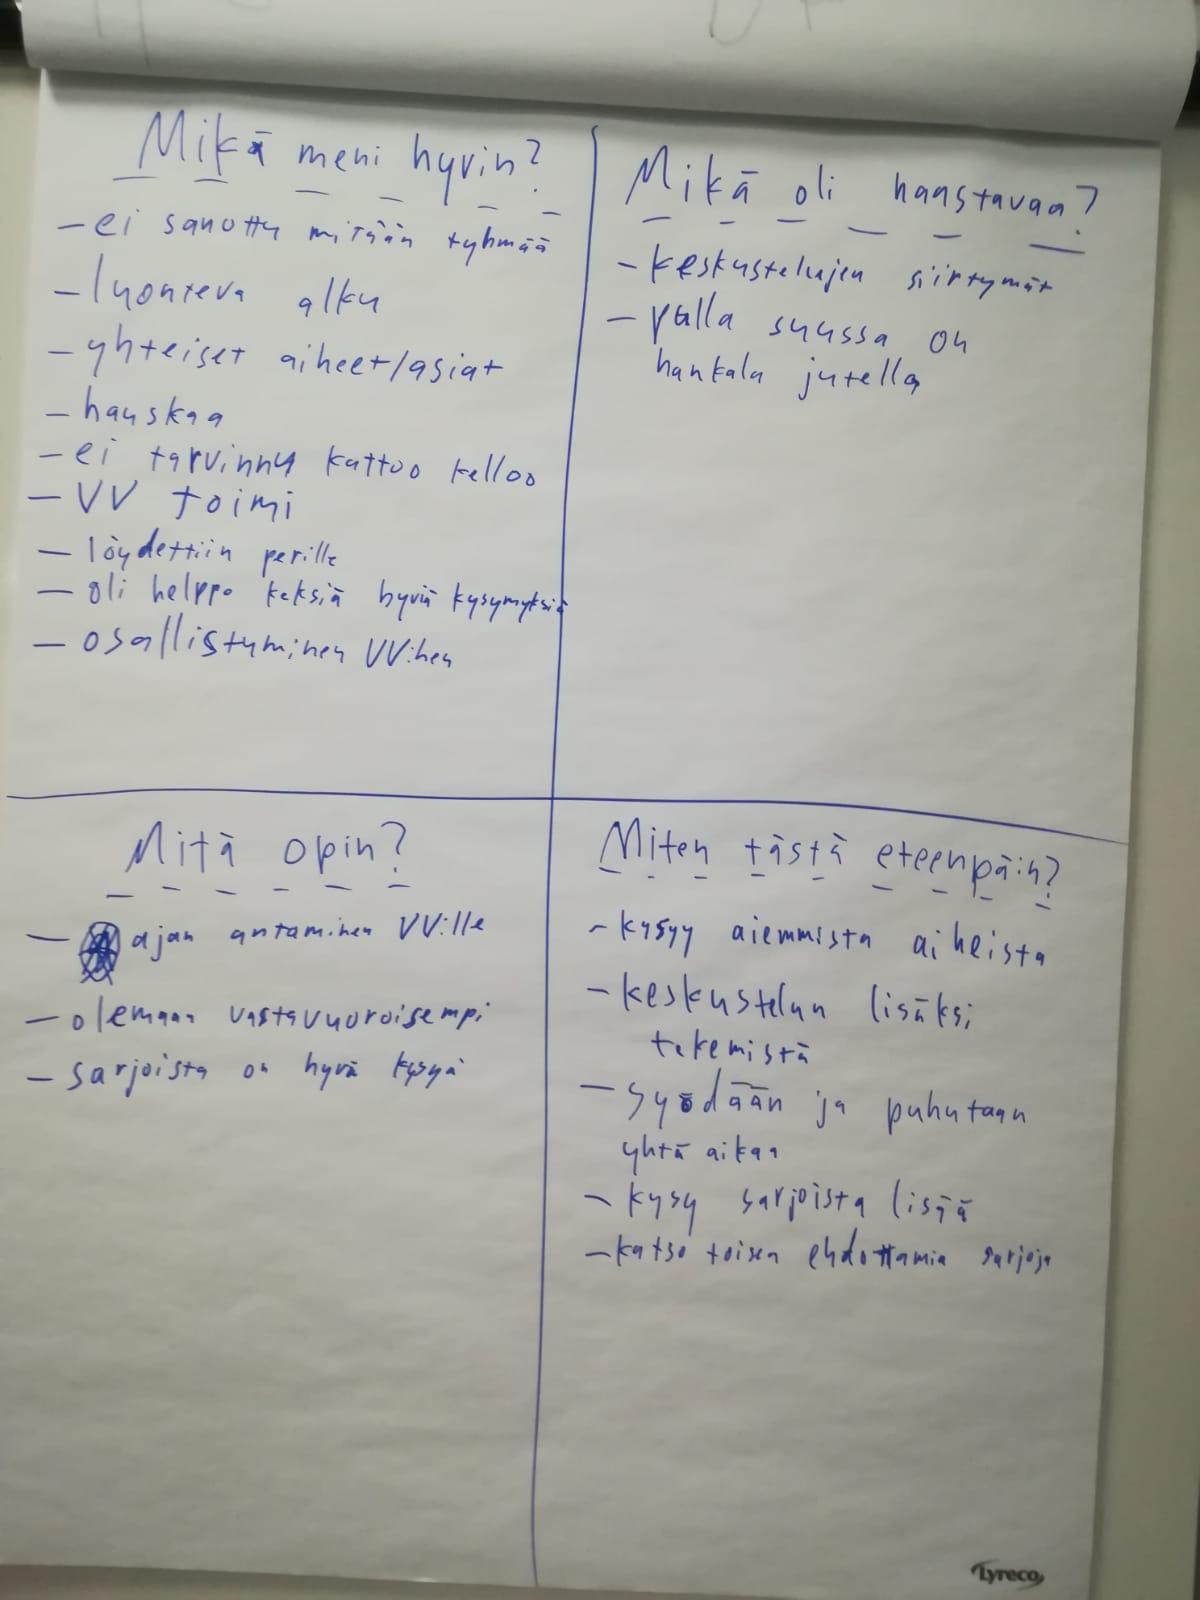 Mikä meni hyvin?
- ei sanottu mitään tyhmää
- luonteva alku
- yhteiset aiheet/asiat
- hauskaa
- ei tarvinnu kattoo kelloo
- VV toimi
- löydettiin perille
- oli helppo keksiä hyviä kysymyksiä
- osallistuminen VV:hen
Mikä oli haastavaa?
- keskustelujen siirtymät
- pulla suussa on
hankala jutella
Mitä opin?
- ajan antaminen VV:lle
- olemaan vastavuoroisempi
- sarjoista on hyvä kysyä
Miten tästä eteenpäin?
- kysyy aiemmista aiheista
- keskustelun lisäksi
tekemistä
- syödään ja puhutaan
yhtä aikaa
- kysy sarjoista lisää
- katso toisen ehdottamia sarjoja
Lyreco